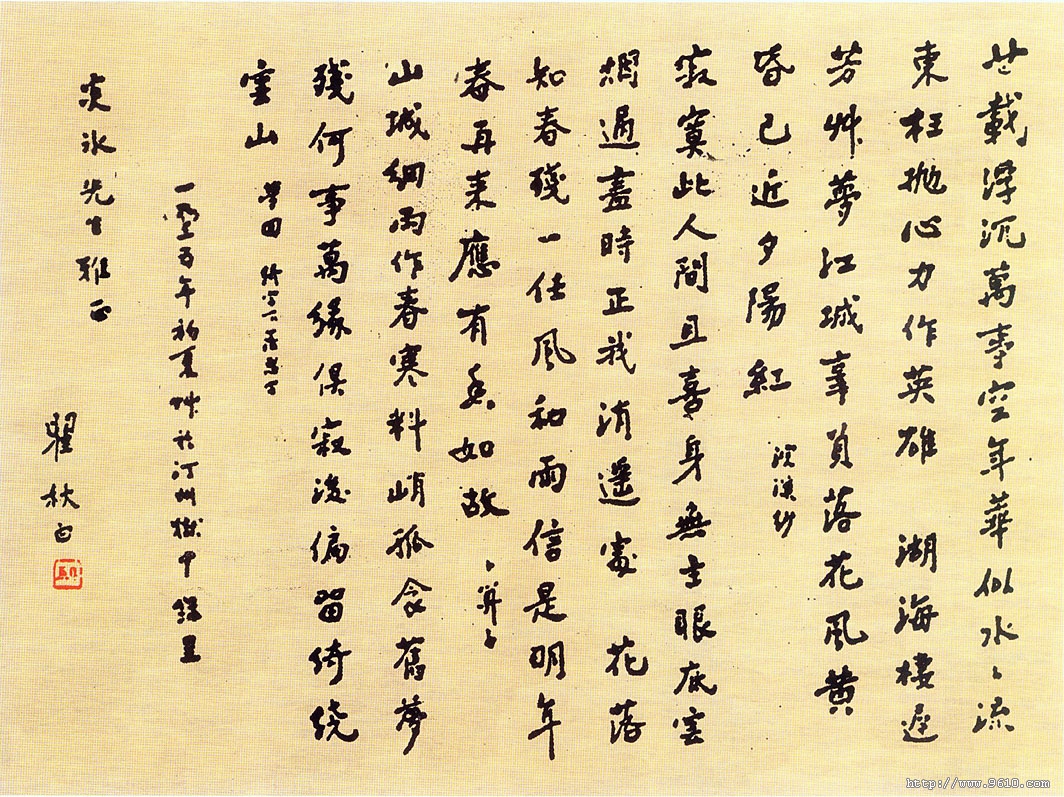 廿載浮沉萬事空年華似水〻流
東枉抛心力作英雄 湖海棲遲
芳艸夢江城辜負落花風黄
昏已近夕陽紅 浣溪紗
寂寞此人間且喜身無主眼底雲
烟過盡時正我消遥處 花落
知春殘一任風和雨信是明年
春再來應有香如故 卜算子
山城細雨作春寒料峭孤衾舊夢
殘何事萬緣俱寂後偏留綺繞
雲山 夢回
一九三五年初夏艸於汀州獄中錄呈
炎冰先生雅正
瞿秋白
http://www.9610.com